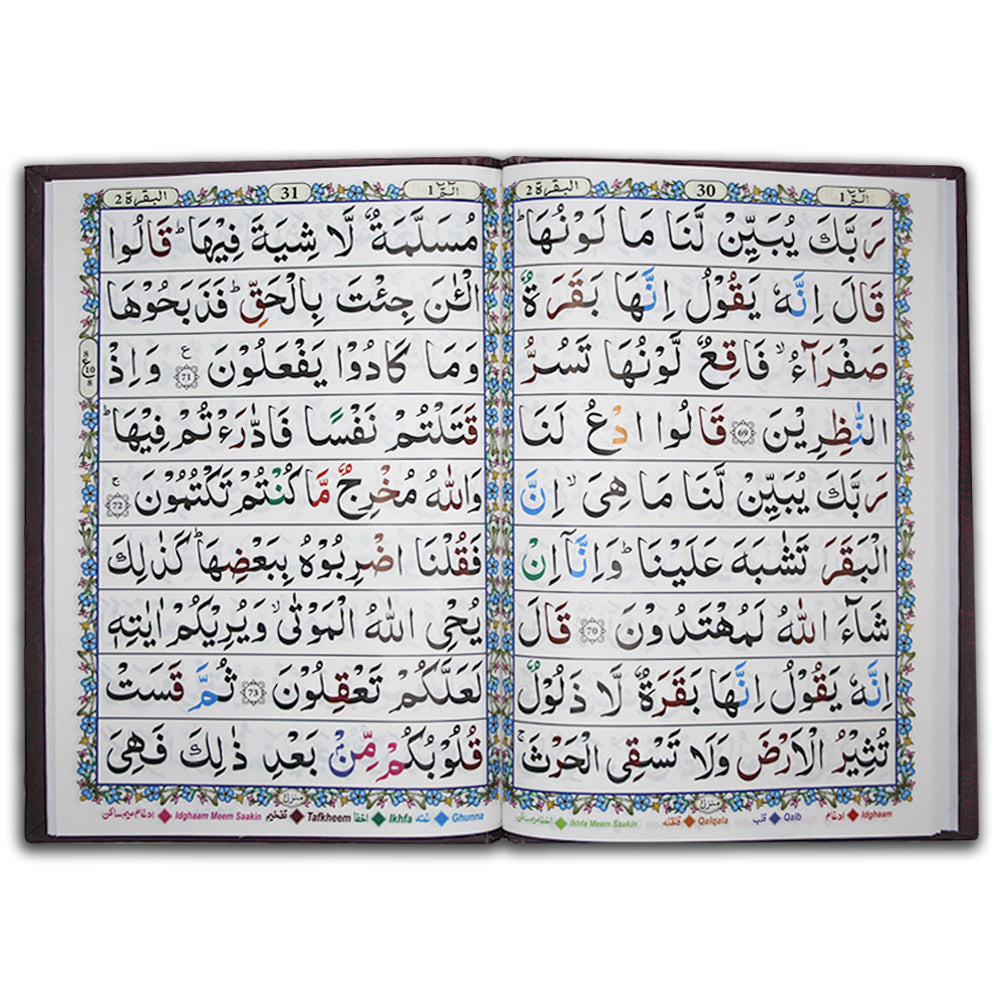 الٓمّٓ 1
30
البقرة 2
رَبَّكَ يُبَيِّنْ لَّنَا مَا لَوْنُهَا ؕ
قَالَ اِنَّهٗ يَقُوْلُ اِنَّهَا بَقَرَةٌ
صَفْرَآءُ ۙ فَاقِعٌ لَّوْنُهَا تَسُرُّ
النّٰظِرِيْنَ 69 قَالُوا ادْعُ لَنَا
رَبَّكَ يُبَيِّنْ لَّنَا مَا هِىَ ۙ اِنَّ
الْبَقَرَ تَشٰبَهَ عَلَيْنَا ؕ وَاِنَّاۤ اِنْ
شَآءَ اللّٰهُ لَمُهْتَدُوْنَ 70 قَالَ
اِنَّهٗ يَقُوْلُ اِنَّهَا بَقَرَةٌ لَّا ذَلُوْلٌ
تُثِيْرُ الْاَرْضَ وَلَا تَسْقِى الْحَرْثَ ۚ
منزل ١
ادغام Idghaam قلب Qalb قلقله Qalqala اخفا میم ساکن Ikhfa Meem Saakin
الٓمّٓ 1
31
البقرة 2
مُسَلَّمَةٌ لَّا شِيَةَ فِيْهَا ؕ قَالُوا
الْـٰٔنَ جِئْتَ بِالْحَقِّ ؕ فَذَبَحُوْهَا
وَمَا كَادُوْا يَفْعَلُوْنَ 71 ع وَاِذْ
8 ع 10 8
قَتَلْتُمْ نَفْسًا فَادّٰرَءْتُمْ فِيْهَا ؕ
وَاللّٰهُ مُخْرِجٌ مَّا كُنْتُمْ تَكْتُمُوْنَ 72 ۚ
فَقُلْنَا اضْرِبُوْهُ بِبَعْضِهَا ؕ كَذٰلِكَ
يُحْىِ اللّٰهُ الْمَوْتٰى ۙ وَيُرِيْكُمْ اٰيٰتِهٖ
لَعَلَّكُمْ تَعْقِلُوْنَ 73 ثُمَّ قَسَتْ
قُلُوْبُكُمْ مِّنْۢ بَعْدِ ذٰلِكَ فَهِىَ
منزل ١
Ghunna غنّه Ikhfa اخفا Tafkheem تفخیم Idghaam Meem Saakin ادغام میم ساکن